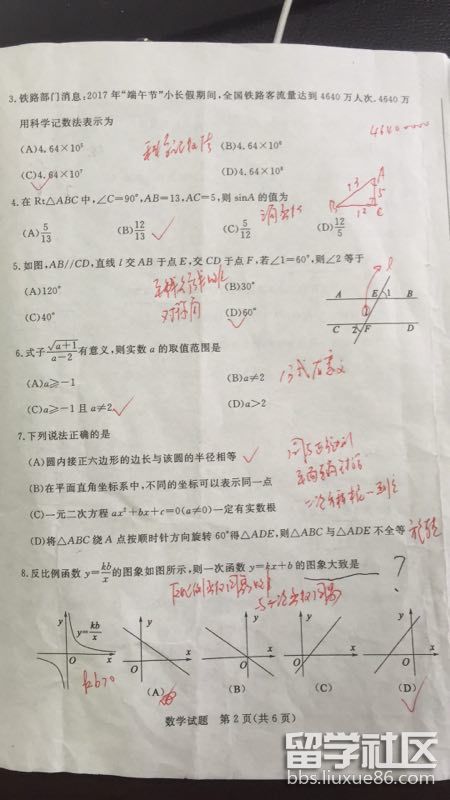 3.铁路部门消息:2017年“端午节”小长假期间,全国铁路客流量达到4640万人次.4640万
用科学记数法表示为
4640
(A)4.64×10⁵
科学记数法
(B)4.64×10⁶
(C)4.64×10⁷
(D)4.64×10⁸
4.在Rt△ABC中,∠C=90°,AB=13,AC=5,则sinA的值为
(A)5/13
(B)12/13
(C)5/12
(D)12/5
A
13
5
B
12
C
5.如图,AB//CD,直线l交AB于点E,交CD于点F,若∠1=60°,则∠2等于
(A)120°
(B)30°
(C)40°
(D)60°
l
A E 1 B
C 2 F D
6.式子√(a+1)/(a-2)有意义,则实数a的取值范围是
(A)a≥-1
(B)a≠2
(C)a≥-1且a≠2
(D)a>2
7.下列说法正确的是
(A)圆内接正六边形的边长与该圆的半径相等
(B)在平面直角坐标系中,不同的坐标可以表示同一点
(C)一元二次方程ax²+bx+c=0(a≠0)一定有实数根
(D)将△ABC绕A点按顺时针方向旋转60°得△ADE,则△ABC与△ADE不全等
旋转
8.反比例函数y=kb/x的图象如图所示,则一次函数y=kx+b的图象大致是
?
y
y=kb/x
O
x
kb>0
y
O
x
(A)
y
O
x
(B)
y
O
x
(C)
y
O
x
(D)
数学试题 第2页(共6页)
留学社区
bbs.liuxue86.com